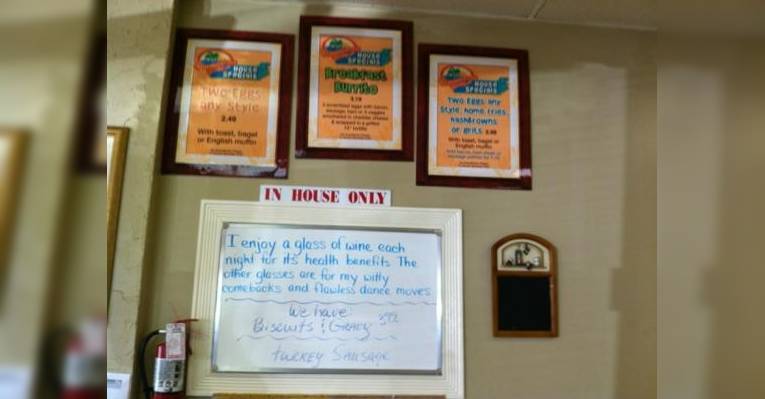 HOUSE
SPECIALS
Two Eggs
any Style
2.49
With toast, bagel
or English muffin
HOUSE
SPECIALS
Breakfast
Burrito
HOUSE
SPECIALS
Two Eggs any
Style, home fries
hashbrowns
or grits
With toast, bagel or
English muffin
IN HOUSE ONLY
I enjoy a glass of wine each
night for its health benefits The
other glasses are for my witty
comebacks and flawless dance moves
We have:
Biscuits & Gravy
turkey Sausage